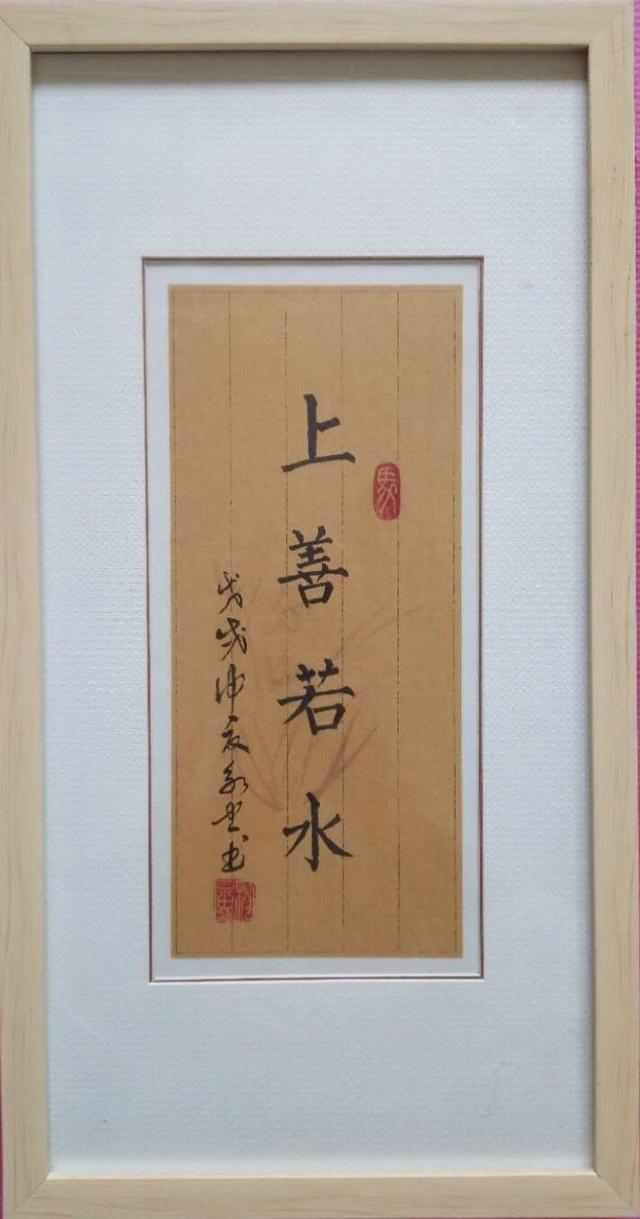 上善若水
戊戌仲夏永生书